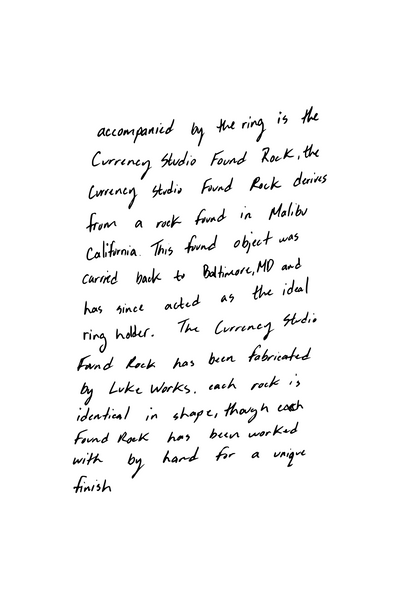 accompanied by the ring is the
Currency Studio Found Rock, the
Currency Studio Found Rock derives
from a rock found in Malibu
California. This found object was
carried back to Baltimore, MD and
has since acted as the ideal
ring holder. The Currency Studio
Found Rock has been fabricated
by Luke Works. each rock is
identical in shape, though each
Found Rock has been worked
with by hand for a unique
finish